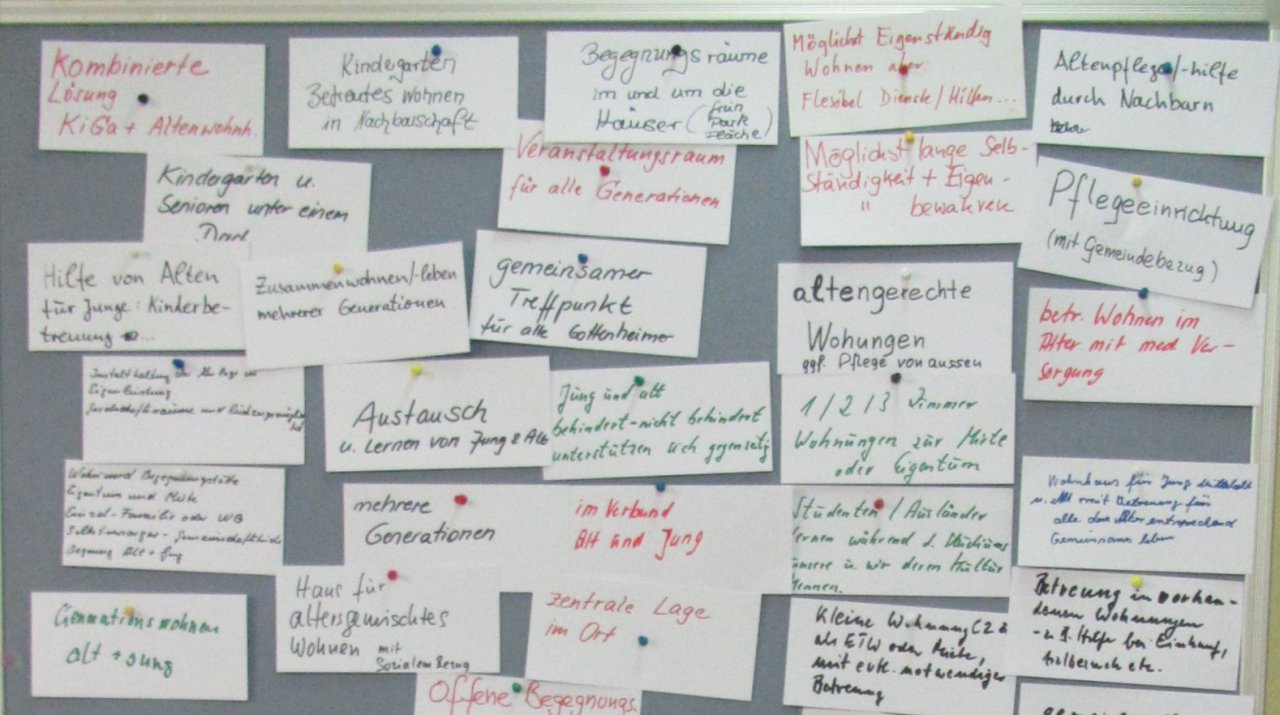 Kombinierte
Lösung
KiGa + Altenwohnh.
Kindergarten
Betreutes Wohnen
in Nachbarschaft
Begegnungsräume
im und um die
Häuser (
Park
Möglichst Eigenständig
Wohnen aber
Flexibel Dienste/Hilfen...
Altenpflege/-hilfe
durch Nachbarn
Kindergarten u.
Senioren unter einem
Veranstaltungsraum
für alle Generationen
Möglichst lange Selb-
ständigkeit + Eigen-
" bewahren
Pflegeeinrichtung
(mit Gemeindebezug)
Hilfe von Alten
für Junge: Kinderbe-
treuung ...
Zusammenwohnen/-leben
mehrerer Generationen
gemeinsamer
Treffpunkt
für alle Gottenheimer
altengerechte
Wohungen
ggf. Pflege von aussen
betr. Wohnen im
Alter mit med Ver-
sorgung
Eigenleistung
Austausch
u. Lernen von Jung & Alt
Jung und alt
behindert-nicht behindert
unterstützen sich gegenseitig
1/2/3 Zimmer
Wohnungen zur Miete
oder Eigentum
Wohn und Begegnungsstätte
Eigentum und Miete
Einzel-Familie oder WG
Selbstversorger-
mehrere
Generationen
im Verbund
Alt und Jung
Studenten / Ausländer
lernen während d. Studiums
unsere u. wir deren Kultur
kennen.
Wohnhaus für Jung
u. Alt mit Betreuung für
alle dem Alter entsprechend
Gemeinsam leben
Generations wohnen
alt + jung
Haus für
altersgemischtes
Wohnen mit
Sozialem Bezug
zentrale Lage
im Ort
Kleine Wohnung (2 Z
als ETW oder Miete,
mit evtl. notwendiger
Betreuung
Betreuung in vorhan-
denen Wohnungen
- z.B. Hilfe bei Einkauf,
Offene Begegnungs.